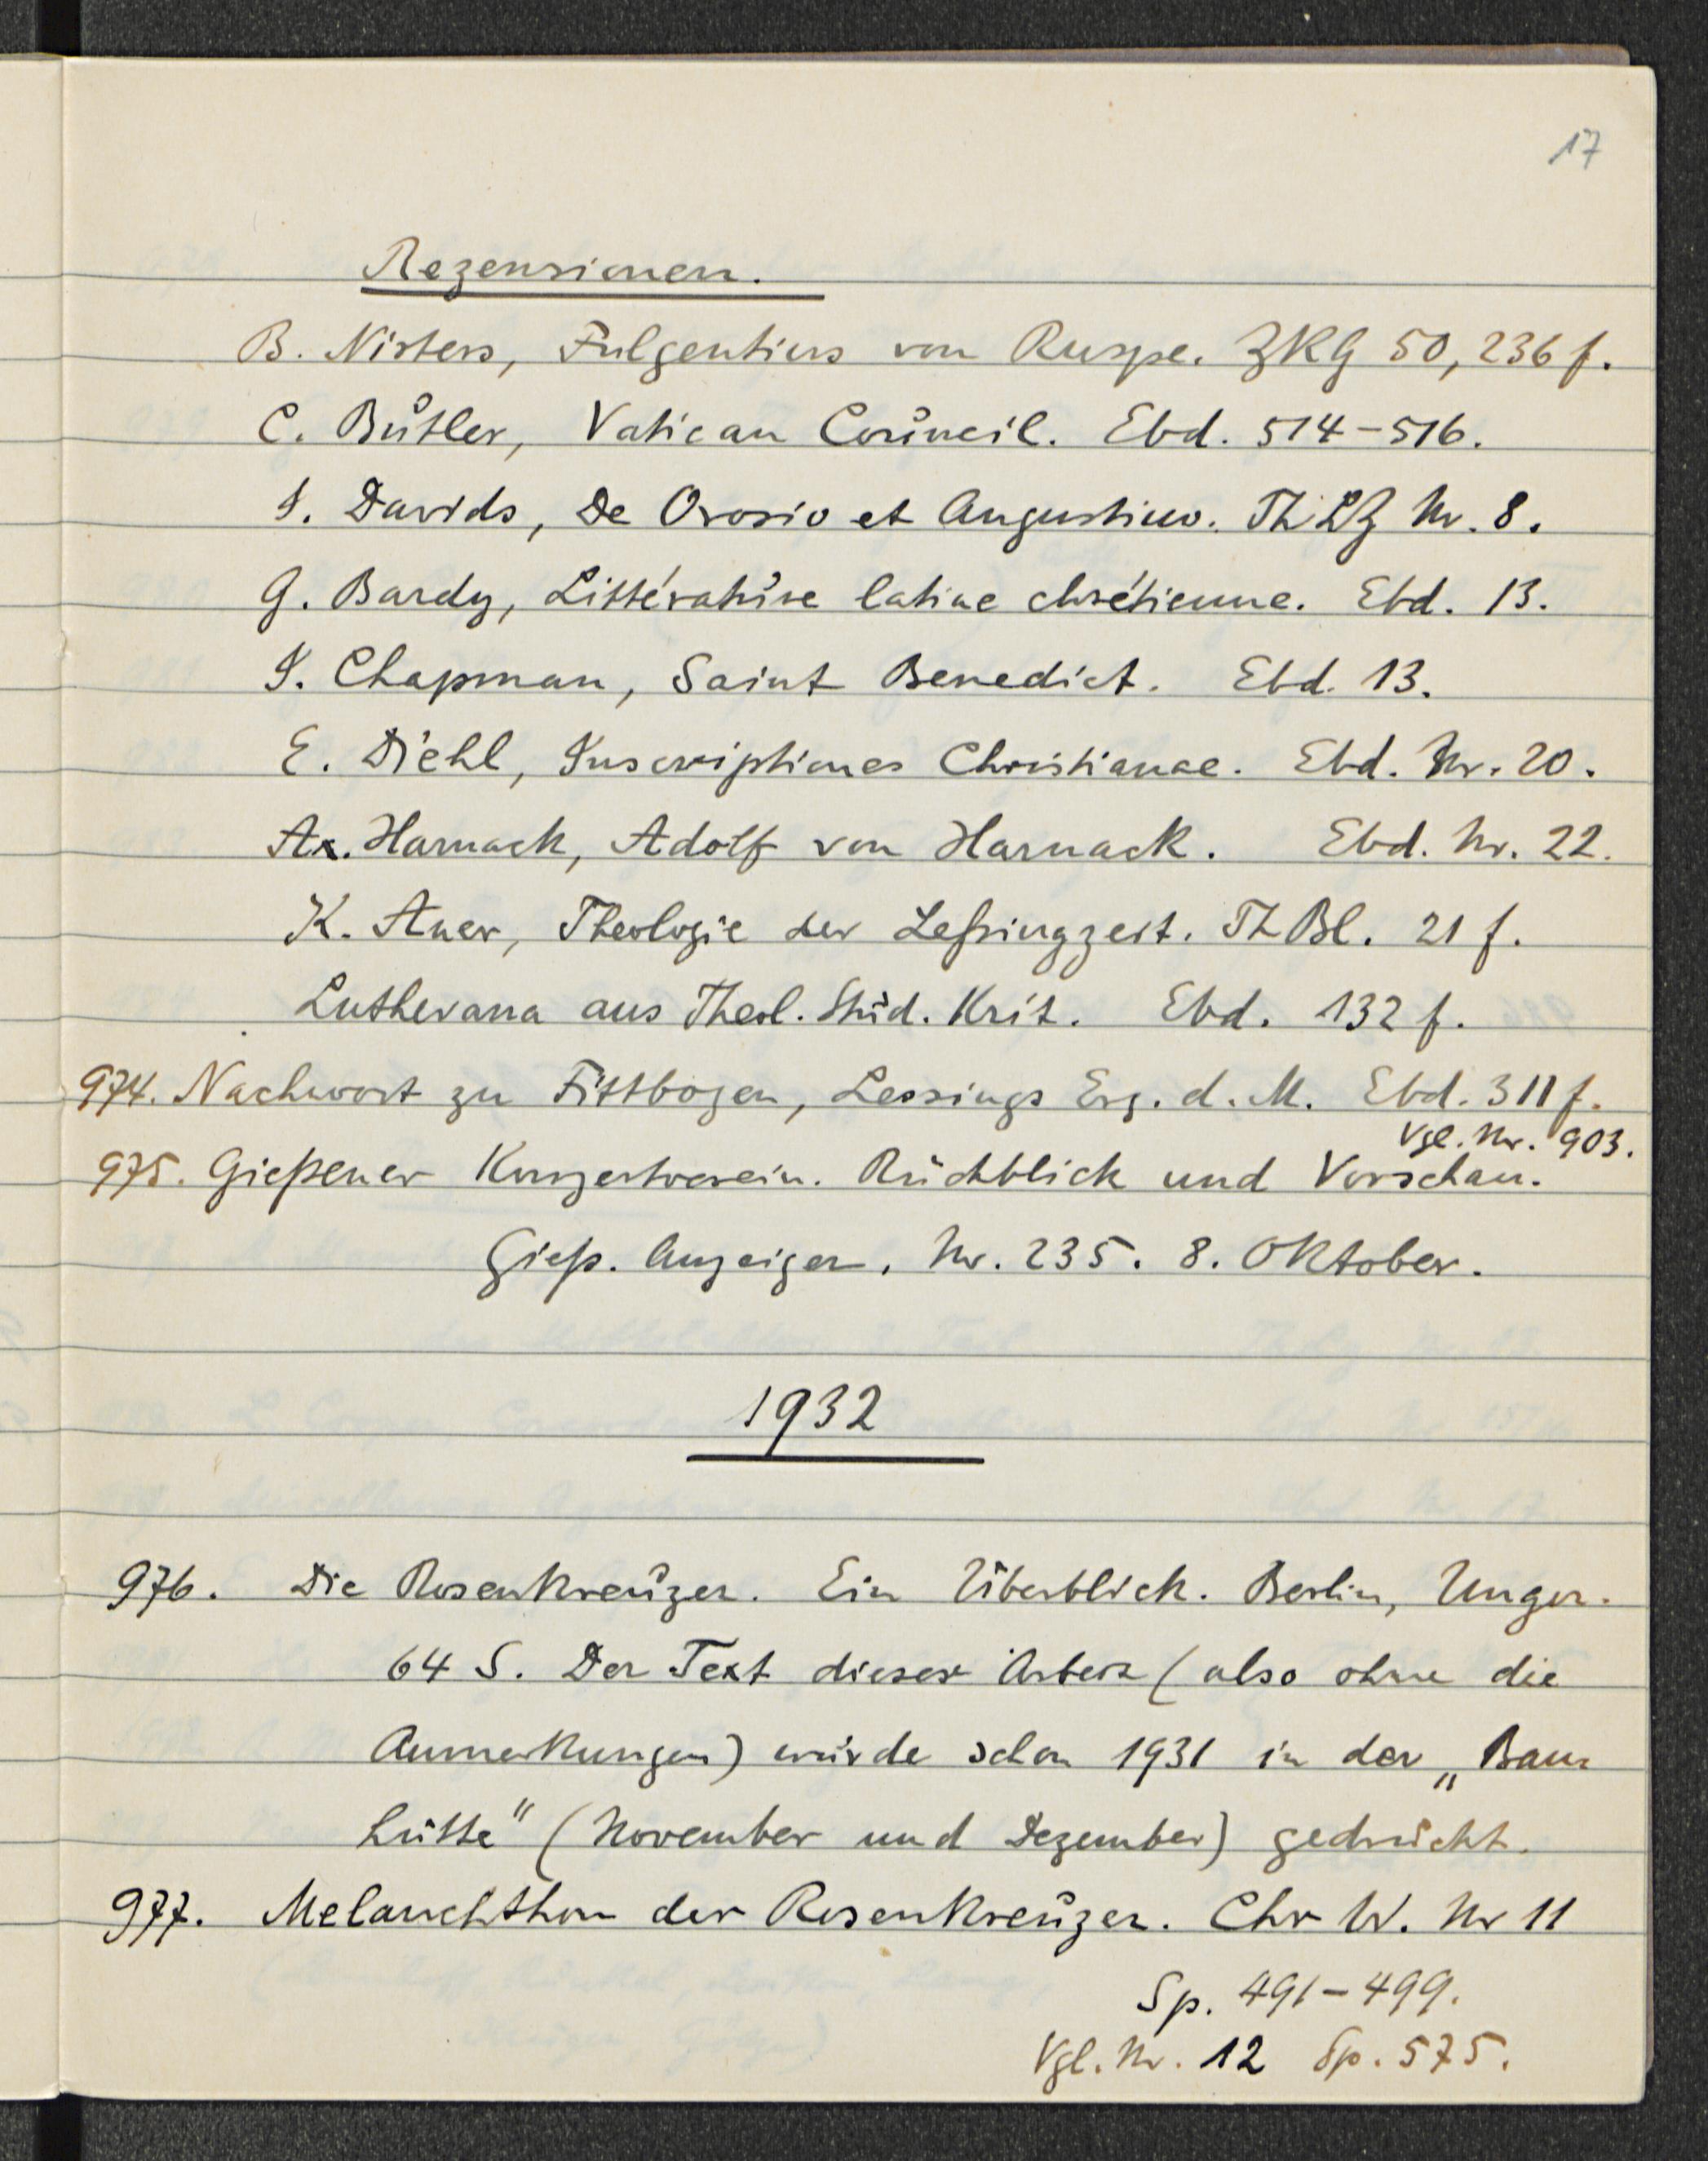 17
Rezensionen.
B. Nisters, Fulgentius von Ruspe. ZKG 50, 236 f.
C. Butler, Vatican Council. Ebd. 514-516.
J. Davids, De Orosio et Augustino. ThLZ Nr. 8.
G. Bardy, Littérature latine chrétienne. Ebd. 13.
J. Chapman, Saint Benedict. Ebd. 13.
E. Diehl, Inscriptiones Christianae. Ebd. Nr. 20.
Ax. Harnack, Adolf von Harnack. Ebd. Nr. 22.
K. Aner, Theologie der Leßingzeit. ThBl. 21 f.
Lutherana aus Theol. Stud. Krit. Ebd. 132 f.
974. Nachwort zu Fittbogen, Lessings Erz. d. M. Ebd. 311 f.
Vgl. Nr. 903.
975. Gießener Konzertverein. Rückblick und Vorschau.
Gieß. Anzeiger. Nr. 235. 8. Oktober.
1932
976. Die Rosenkreuzer. Ein Überblick. Berlin, Unger.
64 S. Der Text dieser Arbeit (also ohne die
Anmerkungen) wurde schon 1931 in der „Bau
hütte" (November und Dezember) gedruckt.
977. Melanchthon der Rosenkreuzer. Chr W. Nr 11
Sp. 491-499.
Vgl. Nr. 12 Sp. 575.